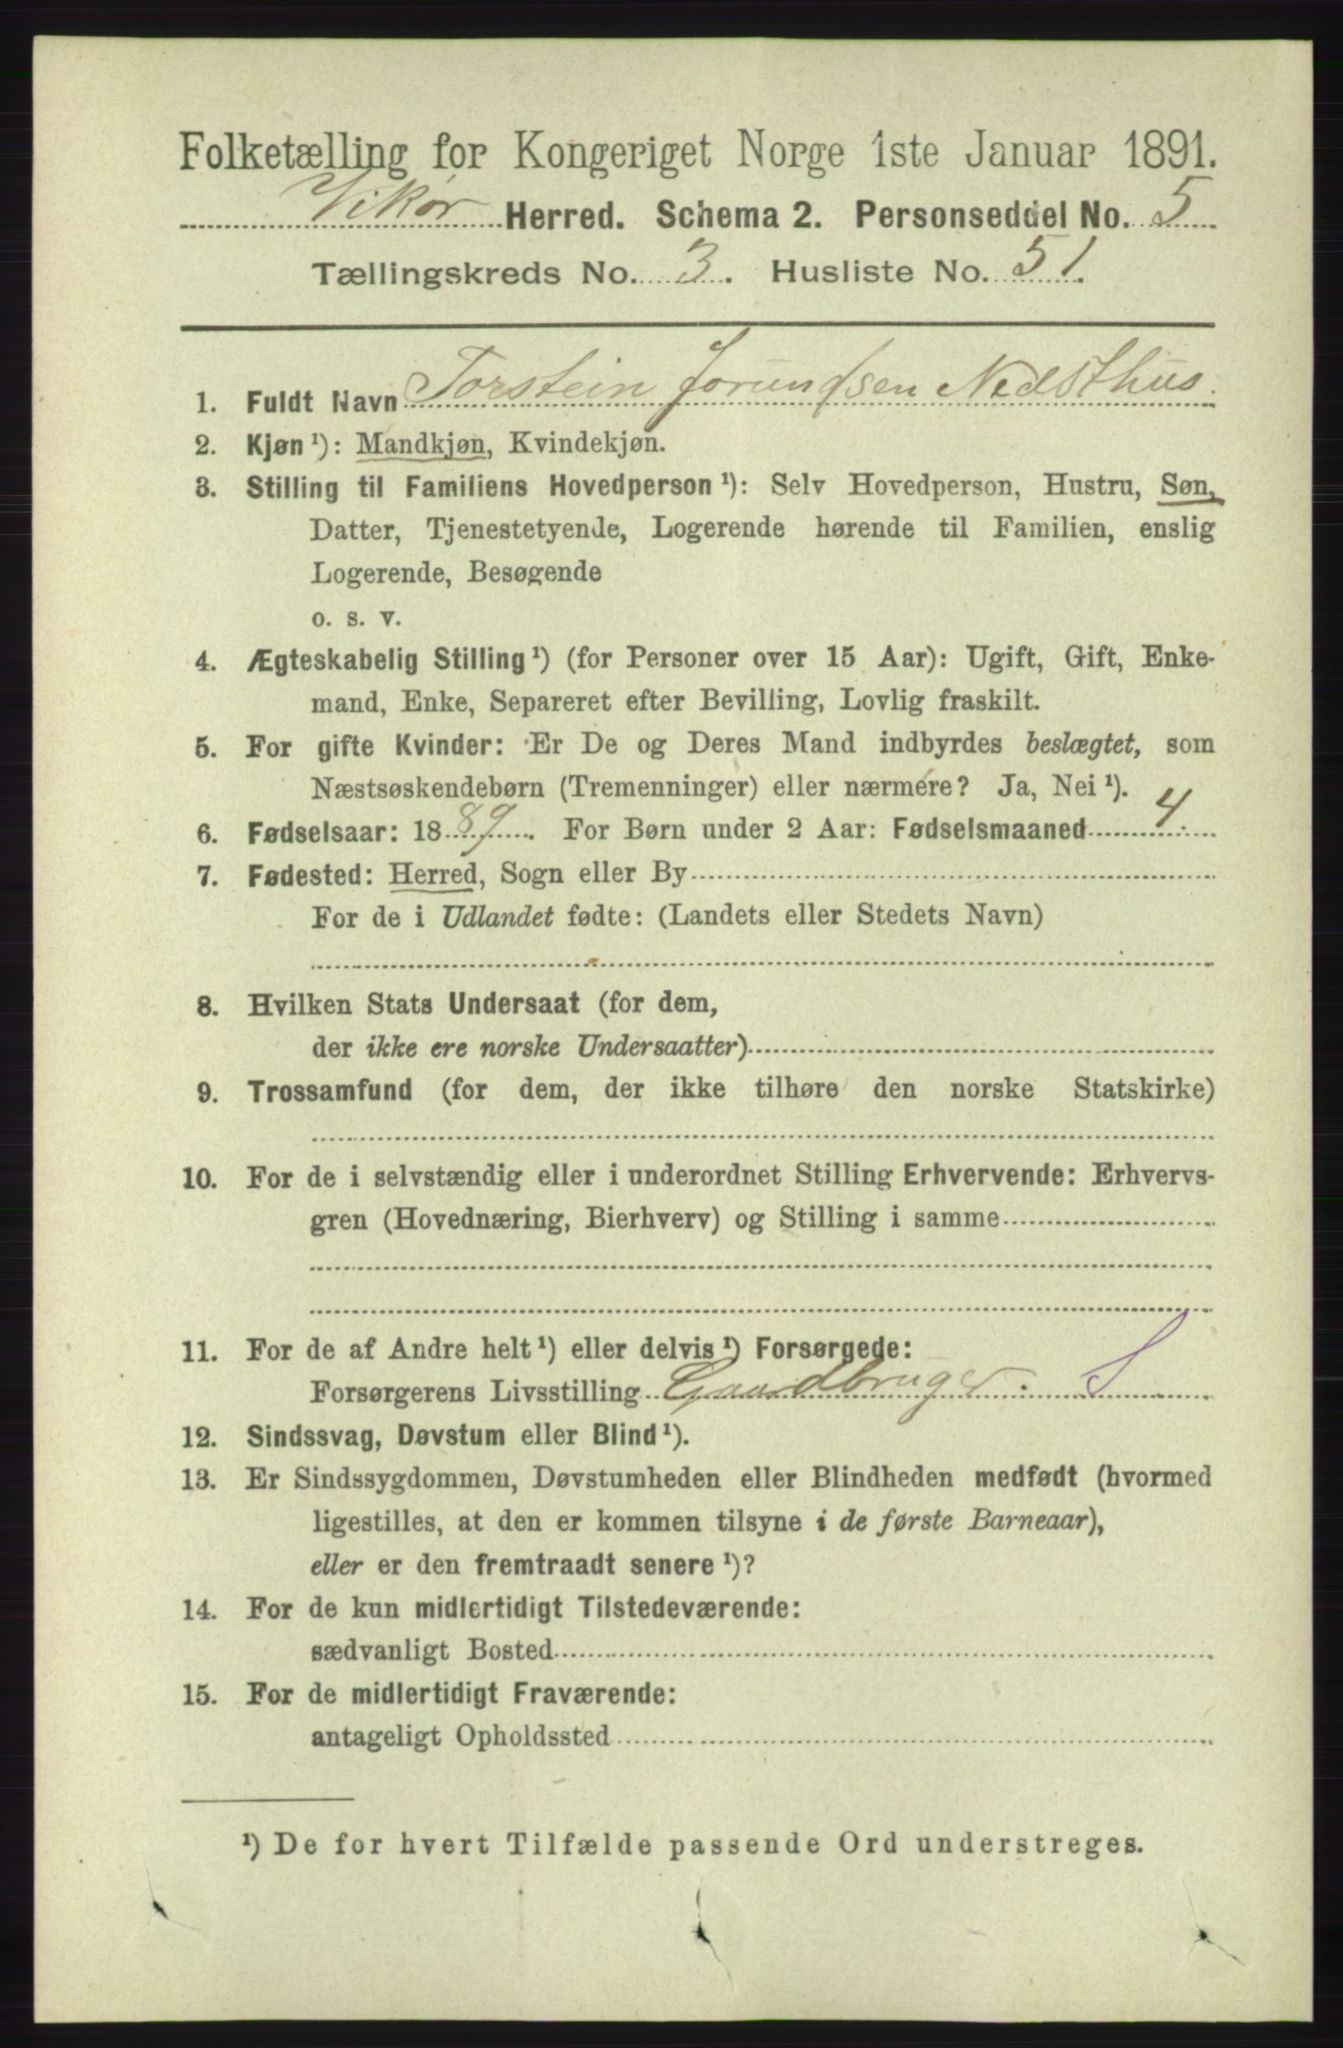 Folketælling for Kongeriget Norge 1ste Januar 1891.
Vikør Herred. Schema 2. Personseddel No. 5
Tællingskreds No. 3. Husliste No. 51.
1. Fuldt Navn Torstein Jorundsen Nedsthus.
2. Kjøn¹): Mandkjøn, Kvindekjøn.
3. Stilling til Familiens Hovedperson¹): Selv Hovedperson, Hustru, Søn,
Datter, Tjenestetyende, Logerende hørende til Familien, enslig
Logerende, Besøgende
o. s. v.
4. Ægteskabelig Stilling¹) (for Personer over 15 Aar): Ugift, Gift, Enke-
mand, Enke, Separeret efter Bevilling, Lovlig fraskilt.
5. For gifte Kvinder: Er De og Deres Mand indbyrdes beslægtet, som
Næstsøskendebørn (Tremenninger) eller nærmere? Ja, Nei¹).
6. Fødselsaar: 1889. For Børn under 2 Aar: Fødselsmaaned 4.
7. Fødested: Herred, Sogn eller By
For de i Udlandet fødte: (Landets eller Stedets Navn)
8. Hvilken Stats Undersaat (for dem,
der ikke ere norske Undersaatter)
9. Trossamfund (for dem, der ikke tilhøre den norske Statskirke)
10. For de i selvstændig eller i underordnet Stilling Erhvervende: Erhvervs-
gren (Hovednæring, Bierhverv) og Stilling i samme
11. For de af Andre helt¹) eller delvis¹) Forsørgede:
Forsørgerens Livsstilling Gaardbruger. S
12. Sindssvag, Døvstum eller Blind¹).
13. Er Sindssygdommen, Døvstumheden eller Blindheden medfødt (hvormed
ligestilles, at den er kommen tilsyne i de første Barneaar),
eller er den fremtraadt senere¹)?
14. For de kun midlertidigt Tilstedeværende:
sædvanligt Bosted
15. For de midlertidigt Fraværende:
antageligt Opholdssted
¹) De for hvert Tilfælde passende Ord understreges.